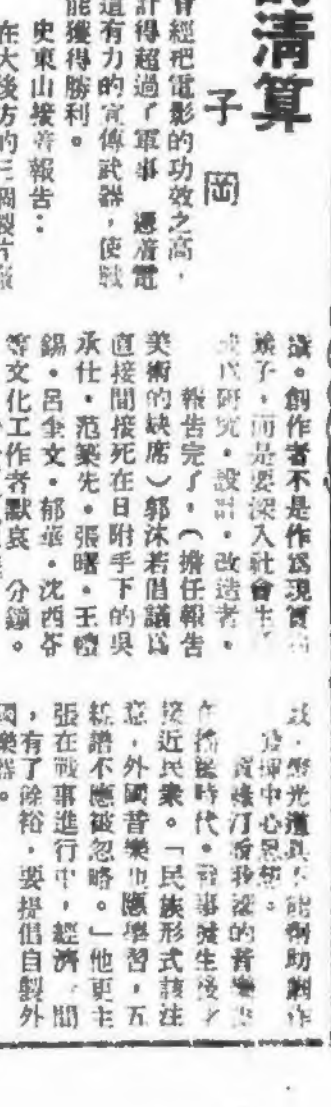 的清算
子岡
曾經把電影的功效之高，
計得超過了軍事，憑着電
這有力的宣傳武器，使戰
能獲得勝利。
史東山接着報告：
在大後方的三個製片廠
創作者不是作為現實
子，而是要深入社會生
研究。設計。改造者。
報告完了。（擔任報告
美術的缺席）郭沫若倡議為
直接間接死在日附手下的吳
承仕。范築先。張曙。王禮
錫。呂奎文。郁華。沈西苓
等文化工作者默哀一分鐘。
燈光道具不能幫助創作
發揮中心思想。
賀綠汀
時代。
接近民衆。「民族形式該注
意，外國音樂也應學習，五
綫譜不應被忽略。」他更主
張在戰事進行中，經濟
，有了餘裕，要提倡自製外
國樂器。